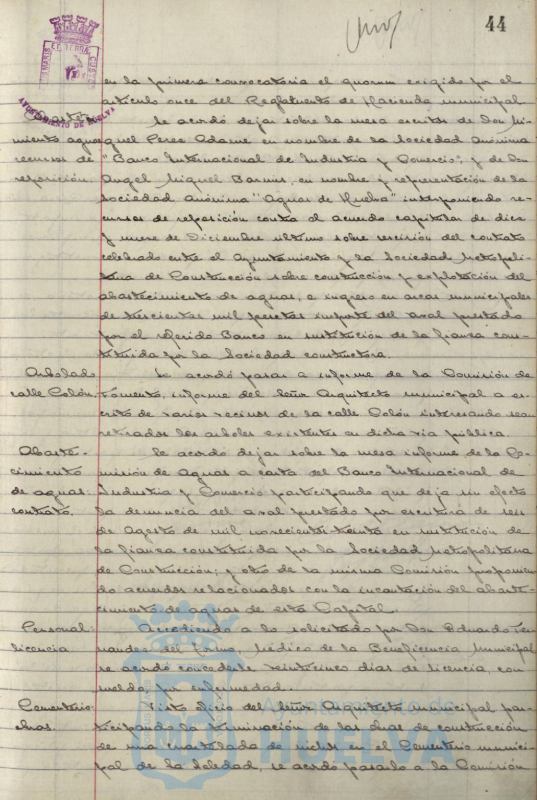 44
en la primera convocatoria el quorum exigido por el
artículo once del Reglamento de Hacienda municipal
Se acordó dejar sobre la mesa escritos de Don Mi-
miento aguas
guel Perez Adame en nombre de la Sociedad Anónima
recursos de
"Banco Internacional de Industria y Comercio", y de Don
reposición.
Angel Miguel en nombre y representación de la
Sociedad Anónima "Aguas de Huelva" interponiendo re-
cursos de reposición contra el acuerdo capitular de diez
y nueve de Diciembre último sobre rescisión del contrato
celebrado entre el Ayuntamiento y la Sociedad Metropoli-
tana de Construcción sobre construcción y explotación del
abastecimiento de aguas, e ingreso en arcas municipales
de trescientas mil pesetas importe del aval prestado
por el referido Banco en sustitución de la fianza cons-
tituida por la Sociedad constructora.
Arbolado
Se acordó pasar a informe de la Comisión de
calle Colón.
Fomento, informe del Señor Arquitecto municipal a es-
crito de varios vecinos de la calle Colón interesando sean
retirados los arboles existentes en dicha vía pública.
Abaste-
Se acordó dejar sobre la mesa informe de la Co-
cimiento
misión de Aguas a carta del Banco Internacional de
de aguas:
Industria y Comercio participando que deja sin efecto
contrato.
la denuncia del aval prestado por escritura de seis
de Agosto de mil novecientos treinta en sustitución de
la fianza constituida por la Sociedad Metropolitana
de Construcción; y otro de la misma Comisión proponien-
do acuerdos relacionados con la incautación del abaste-
cimiento de aguas de esta Capital.
Personal:
Accediendo a lo solicitado por Don Eduardo Fer-
licencia
nandez del Torno, Médico de la Beneficencia Municipal
se acordó concederle veinticinco dias de licencia, con
sueldo por enfermedad.
Cementerio:
Visto oficio del Señor Arquitecto municipal par-
obras.
ticipando la terminación de las obras de construcción
de una cuartelada de nichos en el Cementerio munici-
pal de la Soledad, se acordó pasarlo a la Comisión
AYUNTAMIENTO DE HUELVA
Ayuntamiento de
HUELVA